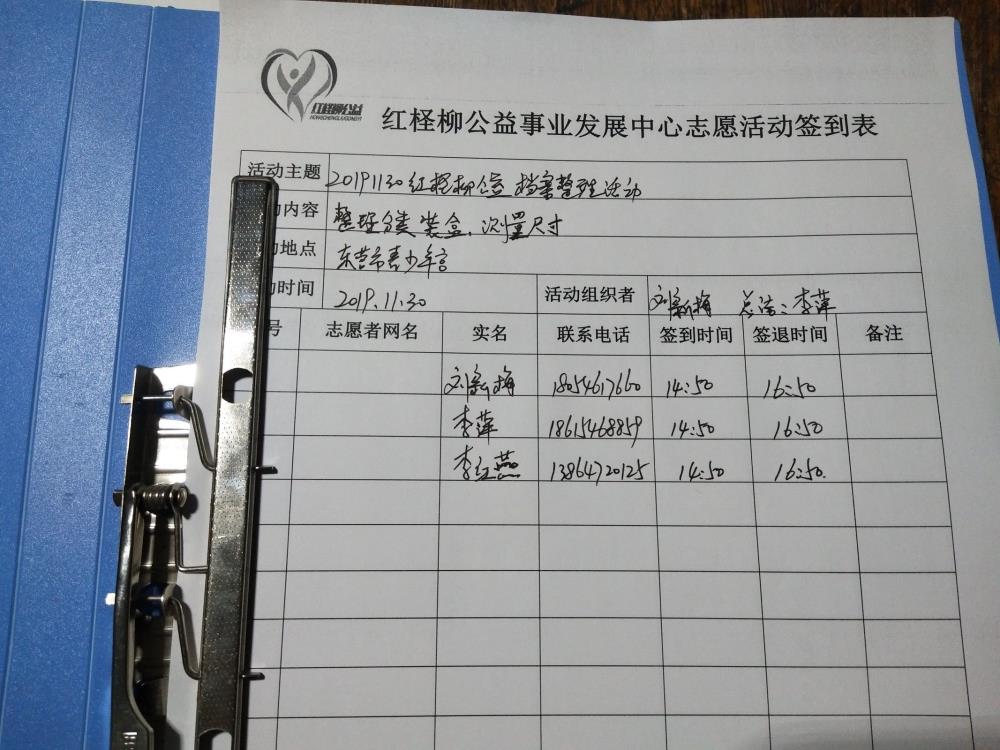 红柽柳公益
HONGCHENGLIUGONGYI
红柽柳公益事业发展中心志愿活动签到表
活动主题 20191130红柽柳公益 档案整理活动
动内容 整理分类 装盒、测量尺寸
地点 东营市青少年宫
动时间 2019.11.30 活动组织者 刘新梅 总结：李萍
号 志愿者网名 实名 联系电话 签到时间 签退时间 备注
刘新梅 18054617660 14:50 16:50
李萍 18615468859 14:50 16:50
李红燕 13864720125 14:50 16:50.